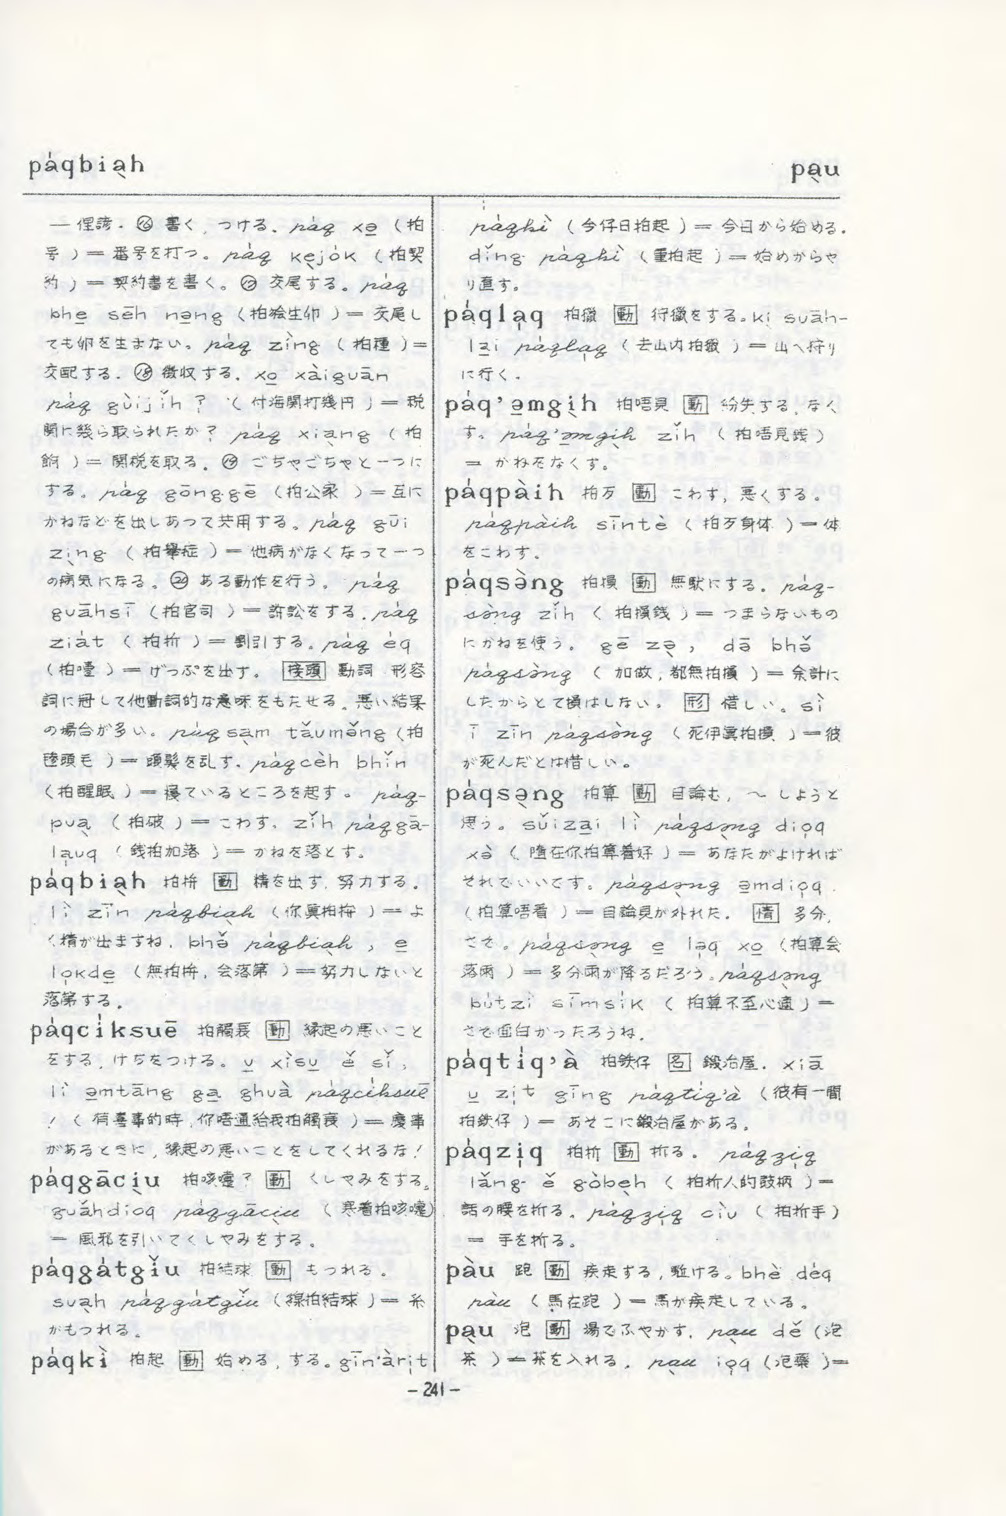 páqbiạh
pạu
— 俚諺. ⑯ 書く, つける. páq xọ (拍
号) = 番号を打つ。páq kẹjók (拍契
約) = 契約書を書く。⑰ 交尾する。páq
bhẹ sēh nạng (拍絵生卵) = 交尾し
ても卵を生まない。páq zǐng (拍種) =
交配する. ⑱ 徴収する. xọ xàiguān
páq gùijǐh? (付海関打幾円) = 税
関に幾ら取られたか? páq xiạng (拍
餉) = 関税を取る. ⑲ ごちゃごちゃと一つに
する。páq gōnggē (拍公家) = 互に
かねなどを出しあって共用する。páq gūi
zịng (拍攏症) = 他病がなくなって一つ
の病気になる。⑳ ある動作を行う。páq
guāhsī (拍官司) = 訴訟をする. páq
ziát (拍折) = 割引する。páq éq
(拍噎) = げっぷを出す。 [接頭] 動詞 形容
詞に冠して他動詞的な意味をもたせる. 悪い結果
の場合が多い。páqsạm tǎumǒng (拍
頭毛) = 頭髪を乱す. páqcèh bhǐn
(拍醒眠) = 寝ているところを起す。páq-
puạ (拍破) = こわす. zǐh páqgā-
lạuq (銭拍加落) = かねを落とす。
páqbiạh 拍拚 [動] 精を出す, 努力する.
lì zīn páqbiạh (你真拍拚) = よ
く精が出ますね. bhǒ páqbiạh, ẹ
lọkdẹ (無拍拚, 会落第) = 努力しないと
落第する.
páqcíksuē 拍觸衰 [動] 縁起の悪いこと
をする, けちをつける。ụ xìsụ ě sǐ,
lì ạmtāng gạ ghuà páqcíksuē
! (有喜事的時, 你唔通給我拍觸衰) = 慶事
があるときに, 縁起の悪いことをしてくれるな!
páqgāciụ 拍咳嚔? [動] くしゃみをする。
guāhdiọq páqgāciụ (寒着拍咳嚔)
= 風邪を引いてくしゃみをする。
páqgátgǐu 拍結球 [動] もつれる。
suạh páqgátgǐu (線拍結球) = 糸
がもつれる。
páqkì 拍起 [動] 始める, する。gīn'àrịt
páqkì (今仔日拍起) = 今日から始める.
dǐng páqkì (重拍起) = 始めからや
り直す。
páqlạq 拍獵 [動] 狩獵をする。kị suāh-
lại páqlạq (去山内拍獵) = 山へ狩り
に行く.
páq'ạmgịh 拍唔見 [動] 紛失する, なく
す。páq'ạmgịh zǐh (拍唔見銭)
= かねをなくす。
páqpàih 拍歹 [動] こわす, 悪くする。
páqpàih sīntè (拍歹身体) = 体
をこわす.
páqsòng 拍損 [動] 無駄にする. páq-
sòng zǐh (拍損銭) = つまらないもの
にかねを使う。gē zọ, dō bhǒ
páqsòng (加做, 都無拍損) = 余計に
したからとて損はしない。 [形] 惜しい。sì
ī zīn páqsòng (死伊真拍損) = 彼
が死んだとは惜しい。
páqsọng 拍算 [動] 目論む, ～しようと
思う。sǔizại lì páqsọng diọq
xò (隨在你拍算着好) = あなたがよければ
それでいいです。páqsọng ạmdiọq
(拍算唔着) = 目論見が外れた. [情] 多分,
さぞ。páqsọng ẹ lọq xọ (拍算会
落雨) = 多分雨が降るだろう。páqsọng
bútzì sīmsik (拍算不至心適) =
さぞ面白かったろうね.
páqtíq'à 拍鉄仔 [名] 鍛冶屋. xiā
ụ zịt gīng páqtíq'à (彼有一間
拍鉄仔) = あそこに鍛冶屋がある.
páqzịq 拍折 [動] 折る。páqzịq
lǎng ě gòbẹh (拍折人的鼓柄) =
話の腰を折る. páqzịq cìu (拍折手)
= 手を折る。
pàu 跑 [動] 疾走する, 駈ける。bhè déq
pàu (馬在跑) = 馬が疾走している。
pạu 泡 [動] 湯でふやかす. pạu dě (泡
茶) = 茶を入れる. pạu iọq (泡薬) =
- 241 -